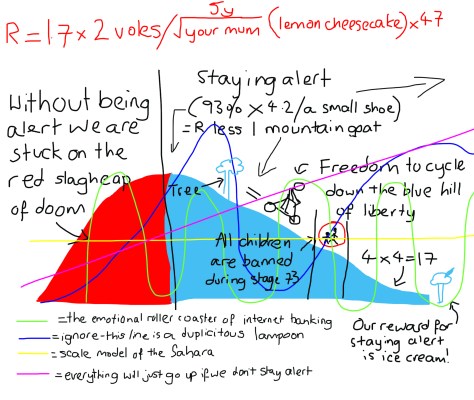 R = 17 × 2 voles/ 5y/√your mum (lemon cheesecake) × 47
Staying alert
(93% × 4.2/a small shoe)
= R less 1 mountain goat
Without being
alert we are
stuck on the
red slagheap
of doom
Tree
Freedom to cycle
down the blue hill
of liberty
All children
are banned
during stage 73
4 × 4 = 17
Our reward for
staying alert
is ice cream!
= the emotional roller coaster of internet banking
= ignore-this line is a duplicitous lampoon
= scale model of the Sahara
= everything will just go up if we don't stay alert